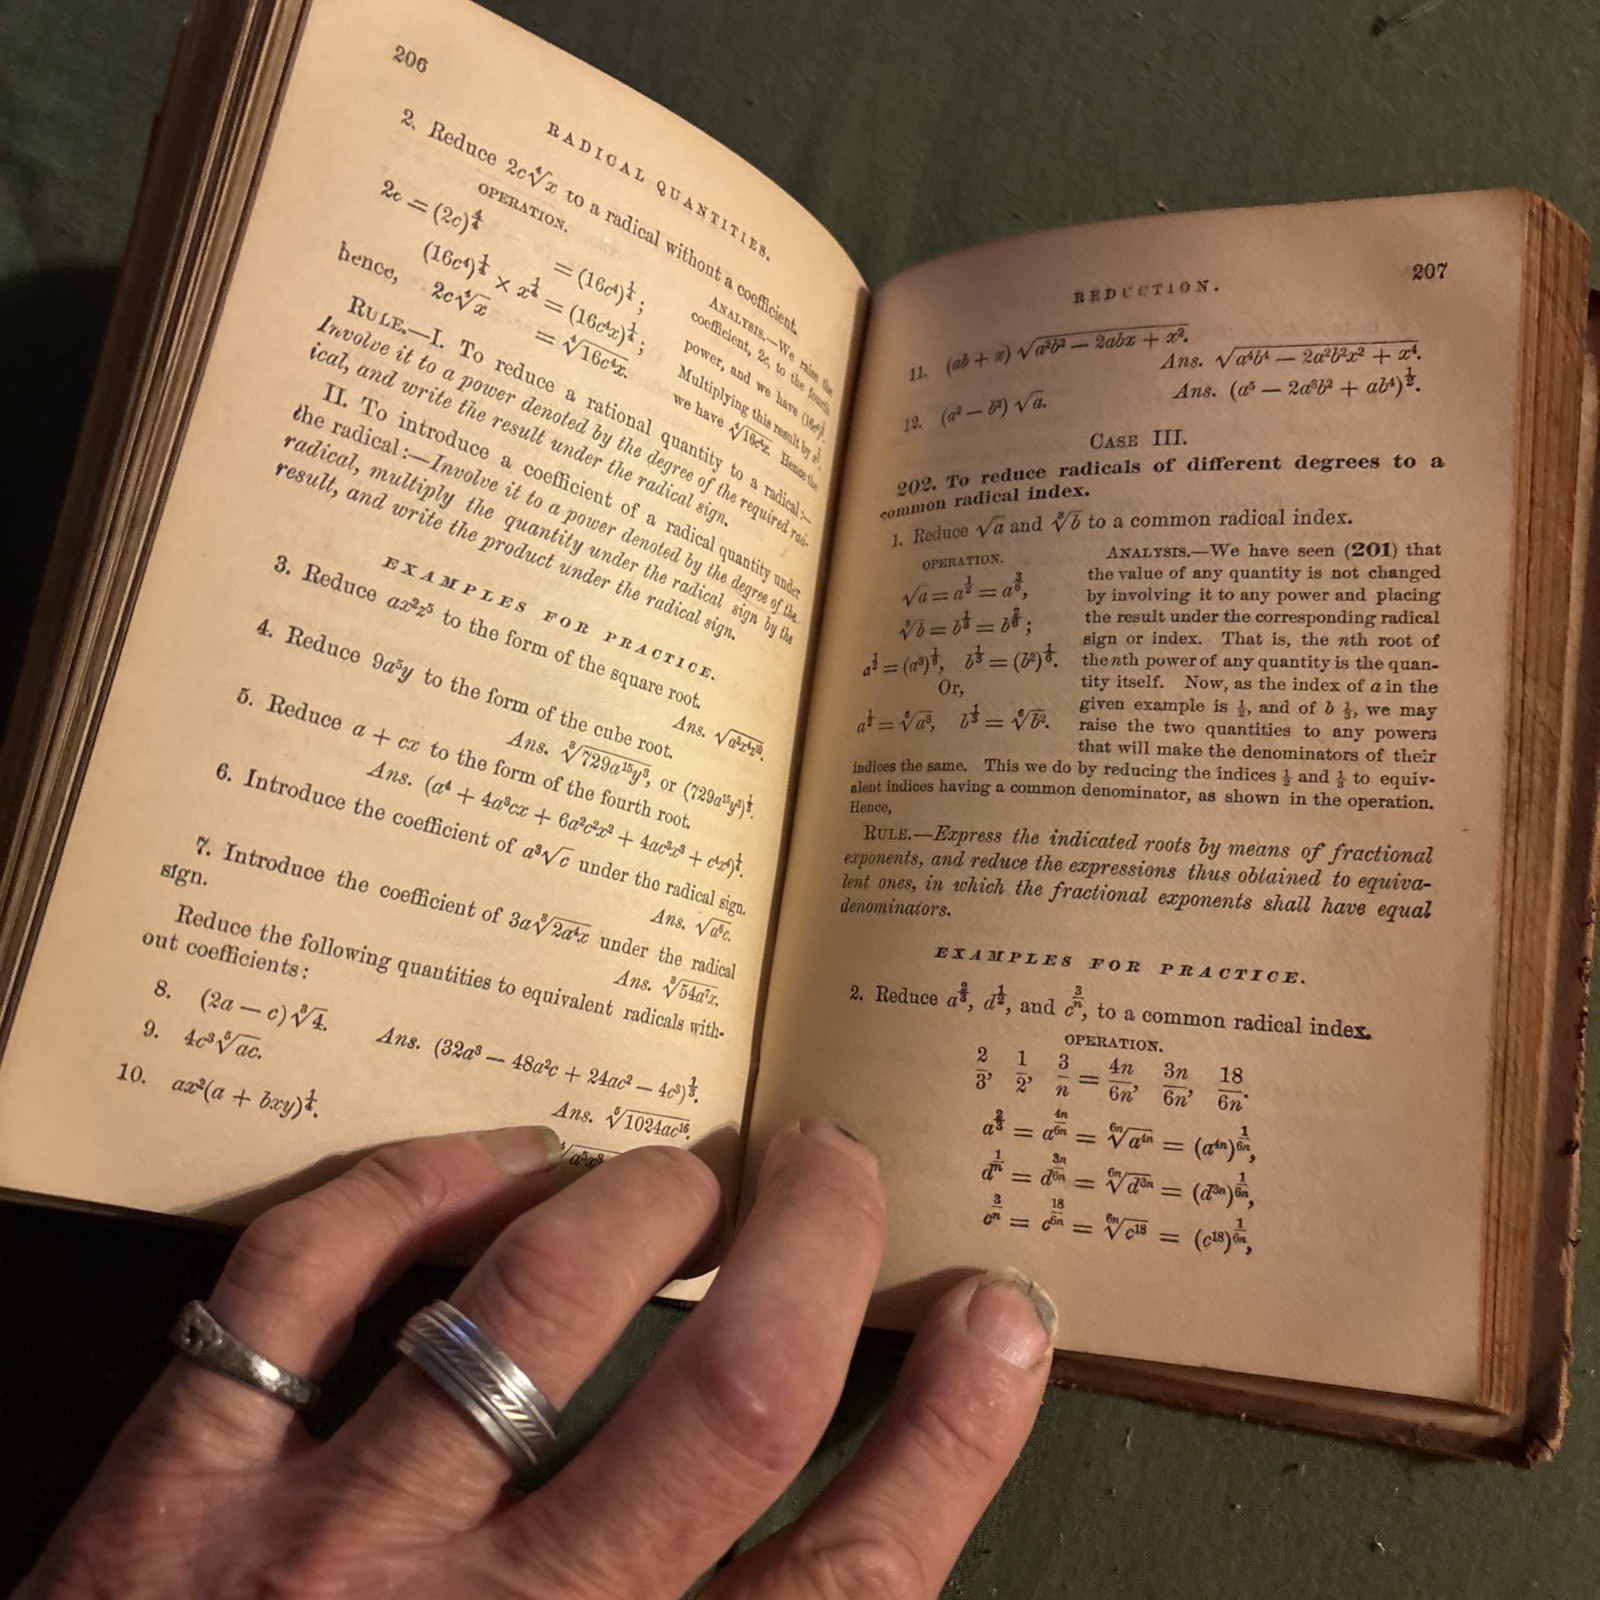 206
RADICAL QUANTITIES.
2. Reduce 2c∜x to a radical without a coefficient.
OPERATION.
2c = (2c)^{4/4} = (16c⁴)^{1/4};
(16c⁴)^{1/4} × x^{1/4} = (16c⁴x)^{1/4};
hence, 2c∜x = ∜16c⁴x.
ANALYSIS.—We raise the
coefficient, 2c, to the fourth
power, and we have (16c⁴)^{1/4}.
Multiplying this result by x^{1/4}
we have ∜16c⁴x. Hence the
RULE.—I. To reduce a rational quantity to a radical:—
Involve it to a power denoted by the degree of the required rad-
ical, and write the result under the radical sign.
II. To introduce a coefficient of a radical quantity under
the radical:—Involve it to a power denoted by the degree of the
radical, multiply the quantity under the radical sign by the
result, and write the product under the radical sign.
EXAMPLES FOR PRACTICE.
3. Reduce ax²z⁵ to the form of the square root.
Ans. √a²x⁴z¹⁰.
4. Reduce 9a⁵y to the form of the cube root.
Ans. ∛729a¹⁵y³, or (729a¹⁵y³)^{1/3}.
5. Reduce a + cx to the form of the fourth root.
Ans. (a⁴ + 4a³cx + 6a²c²x² + 4ac³x³ + c⁴x⁴)^{1/4}.
6. Introduce the coefficient of a³√c under the radical sign.
Ans. √a⁶c.
7. Introduce the coefficient of 3a∛2a⁴x under the radical
sign.
Ans. ∛54a⁷x.
Reduce the following quantities to equivalent radicals with-
out coefficients:
8. (2a − c)∛4.
Ans. (32a³ − 48a²c + 24ac² − 4c³)^{1/3}.
9. 4c³⁵√ac.
Ans. ⁵√1024ac¹⁶.
10. ax²(a + bxy)^{1/4}.
207
REDUCTION.
11. (ab + x) √a²b² − 2abx + x².
Ans. √a⁴b⁴ − 2a²b²x² + x⁴.
12. (a² − b²) √a.
Ans. (a⁵ − 2a³b² + ab⁴)^{1/2}.
CASE III.
202. To reduce radicals of different degrees to a
common radical index.
1. Reduce √a and ∛b to a common radical index.
OPERATION.
√a = a^{1/2} = a^{3/6},
∛b = b^{1/3} = b^{2/6};
a^{1/2} = (a³)^{1/6}, b^{1/3} = (b²)^{1/6}.
Or,
a^{1/2} = ⁶√a³, b^{1/3} = ⁶√b².
ANALYSIS.—We have seen (201) that
the value of any quantity is not changed
by involving it to any power and placing
the result under the corresponding radical
sign or index. That is, the nth root of
the nth power of any quantity is the quan-
tity itself. Now, as the index of a in the
given example is ½, and of b ⅓, we may
raise the two quantities to any powers
that will make the denominators of their
indices the same. This we do by reducing the indices ½ and ⅓ to equiv-
alent indices having a common denominator, as shown in the operation.
Hence,
RULE.—Express the indicated roots by means of fractional
exponents, and reduce the expressions thus obtained to equiva-
lent ones, in which the fractional exponents shall have equal
denominators.
EXAMPLES FOR PRACTICE.
2. Reduce a^{2/3}, d^{1/2}, and c^{3/n}, to a common radical index.
OPERATION.
2/3, 1/2, 3/n = 4n/6n, 3n/6n, 18/6n.
a^{2/3} = a^{4n/6n} = ⁶ⁿ√a⁴ⁿ = (a⁴ⁿ)^{1/6n},
d^{1/n} = d^{3n/6n} = ⁶ⁿ√d³ⁿ = (d³ⁿ)^{1/6n},
c^{3/n} = c^{18/6n} = ⁶ⁿ√c¹⁸ = (c¹⁸)^{1/6n},